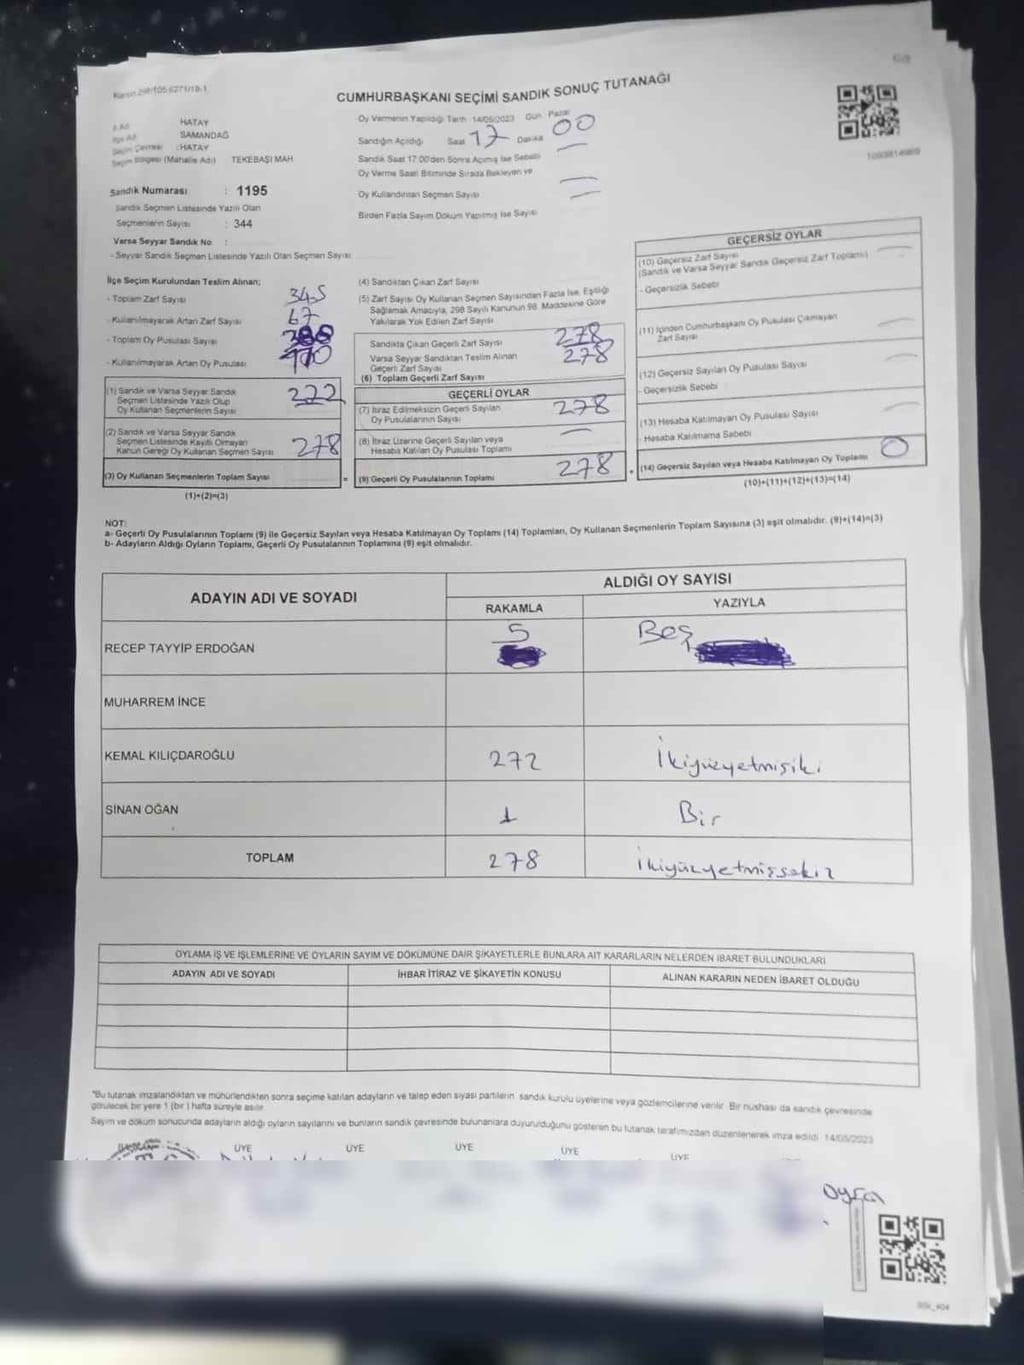 CUMHURBAŞKANI SEÇİMİ SANDIK SONUÇ TUTANAĞI
HATAY
SAMANDAĞ
Seçim Çevresi : HATAY
Seçim Bölgesi (Mahalle Adı) TEKEBAŞI MAH
Sandık Numarası : 1195
Sandık Seçmen Listesinde Yazılı Olan
Seçmenlerin Sayısı : 344
Varsa Seyyar Sandık No :
- Seyyar Sandık Seçmen Listesinde Yazılı Olan Seçmen Sayısı
Oy Vermenin Yapıldığı Tarih 14/05/2023 Gün Pazar
Sandığın Açıldığı Saat 17 Dakika 00
Sandık Saat 17.00'den Sonra Açılmış İse Sebebi
Oy Verme Saati Bitiminde Sırada Bekleyen ve
Oy Kullandırılan Seçmen Sayısı
Birden Fazla Sayım Döküm Yapılmış İse Sayısı
İlçe Seçim Kurulundan Teslim Alınan;
- Toplam Zarf Sayısı 345
- Kullanılmayarak Artan Zarf Sayısı 67
- Toplam Oy Pusulası Sayısı
- Kullanılmayarak Artan Oy Pusulası
(1) Sandık ve Varsa Seyyar Sandık
Seçmen Listesinde Yazılı Olup
Oy Kullanan Seçmenlerin Sayısı
(2) Sandık ve Varsa Seyyar Sandık
Seçmen Listesinde Kayıtlı Olmayan
Kanun Gereği Oy Kullanan Seçmen Sayısı
278
(3) Oy Kullanan Seçmenlerin Toplam Sayısı
(1)+(2)=(3)
(4) Sandıktan Çıkan Zarf Sayısı
(5) Zarf Sayısı Oy Kullanan Seçmen Sayısından Fazla İse, Eşitliği
Sağlamak Amacıyla, 298 Sayılı Kanunun 98. Maddesine Göre
Yakılarak Yok Edilen Zarf Sayısı
Sandıkta Çıkan Geçerli Zarf Sayısı 278
Varsa Seyyar Sandıktan Teslim Alınan
Geçerli Zarf Sayısı
278
(6) Toplam Geçerli Zarf Sayısı
GEÇERLİ OYLAR
(7) İtiraz Edilmeksizin Geçerli Sayılan
Oy Pusulalarının Sayısı
278
(8) İtiraz Üzerine Geçerli Sayılan veya
Hesaba Katılan Oy Pusulası Toplamı
(9) Geçerli Oy Pusulalarının Toplamı 278
GEÇERSİZ OYLAR
(10) Geçersiz Zarf Sayısı
(Sandık ve Varsa Seyyar Sandık Geçersiz Zarf Toplamı)
- Geçersizlik Sebebi
(11) İçinden Cumhurbaşkanı Oy Pusulası Çıkmayan
Zarf Sayısı
(12) Geçersiz Sayılan Oy Pusulası Sayısı
- Geçersizlik Sebebi
(13) Hesaba Katılmayan Oy Pusulası Sayısı
- Hesaba Katılmama Sebebi
(14) Geçersiz Sayılan veya Hesaba Katılmayan Oy Toplamı 0
(10)+(11)+(12)+(13)=(14)
NOT:
a- Geçerli Oy Pusulalarının Toplamı (9) ile Geçersiz Sayılan veya Hesaba Katılmayan Oy Toplamı (14) Toplamları, Oy Kullanan Seçmenlerin Toplam Sayısına (3) eşit olmalıdır. (9)+(14)=(3)
b- Adayların Aldığı Oyların Toplamı, Geçerli Oy Pusulalarının Toplamına (9) eşit olmalıdır.
ADAYIN ADI VE SOYADI
ALDIĞI OY SAYISI
RAKAMLA YAZIYLA
RECEP TAYYİP ERDOĞAN 5 Beş
MUHARREM İNCE
KEMAL KILIÇDAROĞLU 272 İkiyüzyetmişiki
SİNAN OĞAN 1 Bir
TOPLAM 278 ikiyüzyetmişsekiz
OYLAMA İŞ VE İŞLEMLERİNE VE OYLARIN SAYIM VE DÖKÜMÜNE DAİR ŞİKAYETLERLE BUNLARA AİT KARARLARIN NELERDEN İBARET BULUNDUKLARI
ADAYIN ADI VE SOYADI İHBAR İTİRAZ VE ŞİKAYETİN KONUSU ALINAN KARARIN NEDEN İBARET OLDUĞU
"Bu tutanak imzalandıktan ve mühürlendikten sonra seçime katılan adayların ve talep eden siyasi partilerin sandık kurulu üyelerine veya gözlemcilerine verilir. Bir nüshası da sandık çevresinde
görülecek bir yere 1 (bir) hafta süreyle asılır.
Sayım ve döküm sonucunda adayların aldığı oyların sayılarını ve bunların sandık çevresinde bulunanlara duyurulduğunu gösteren bu tutanak tarafımızdan düzenlenerek imza edildi. 14/05/2023
ÜYE ÜYE ÜYE ÜYE ÜYE